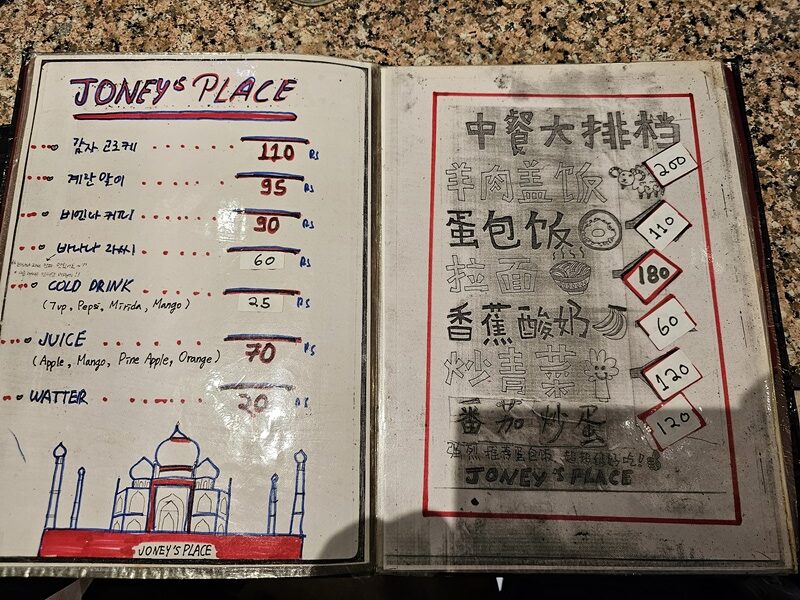 JONEY'S PLACE
감자 고로케 110 RS
계란 말이 95 RS
비엔나 커피 90 RS
바나나 라씨 60 RS
COLD DRINK 25 RS
(7up, Pepsi, Mirida, Mango)
JUICE 70 RS
(Apple, Mango, Pine Apple, Orange)
WATTER 20 RS
JONEY'S PLACE
中餐大排档
羊肉盖饭 200
蛋包饭 110
拉面 180
香蕉酸奶 60
炒青菜 120
番茄炒蛋 120
强烈推荐蛋包饭
JONEY'S PLACE